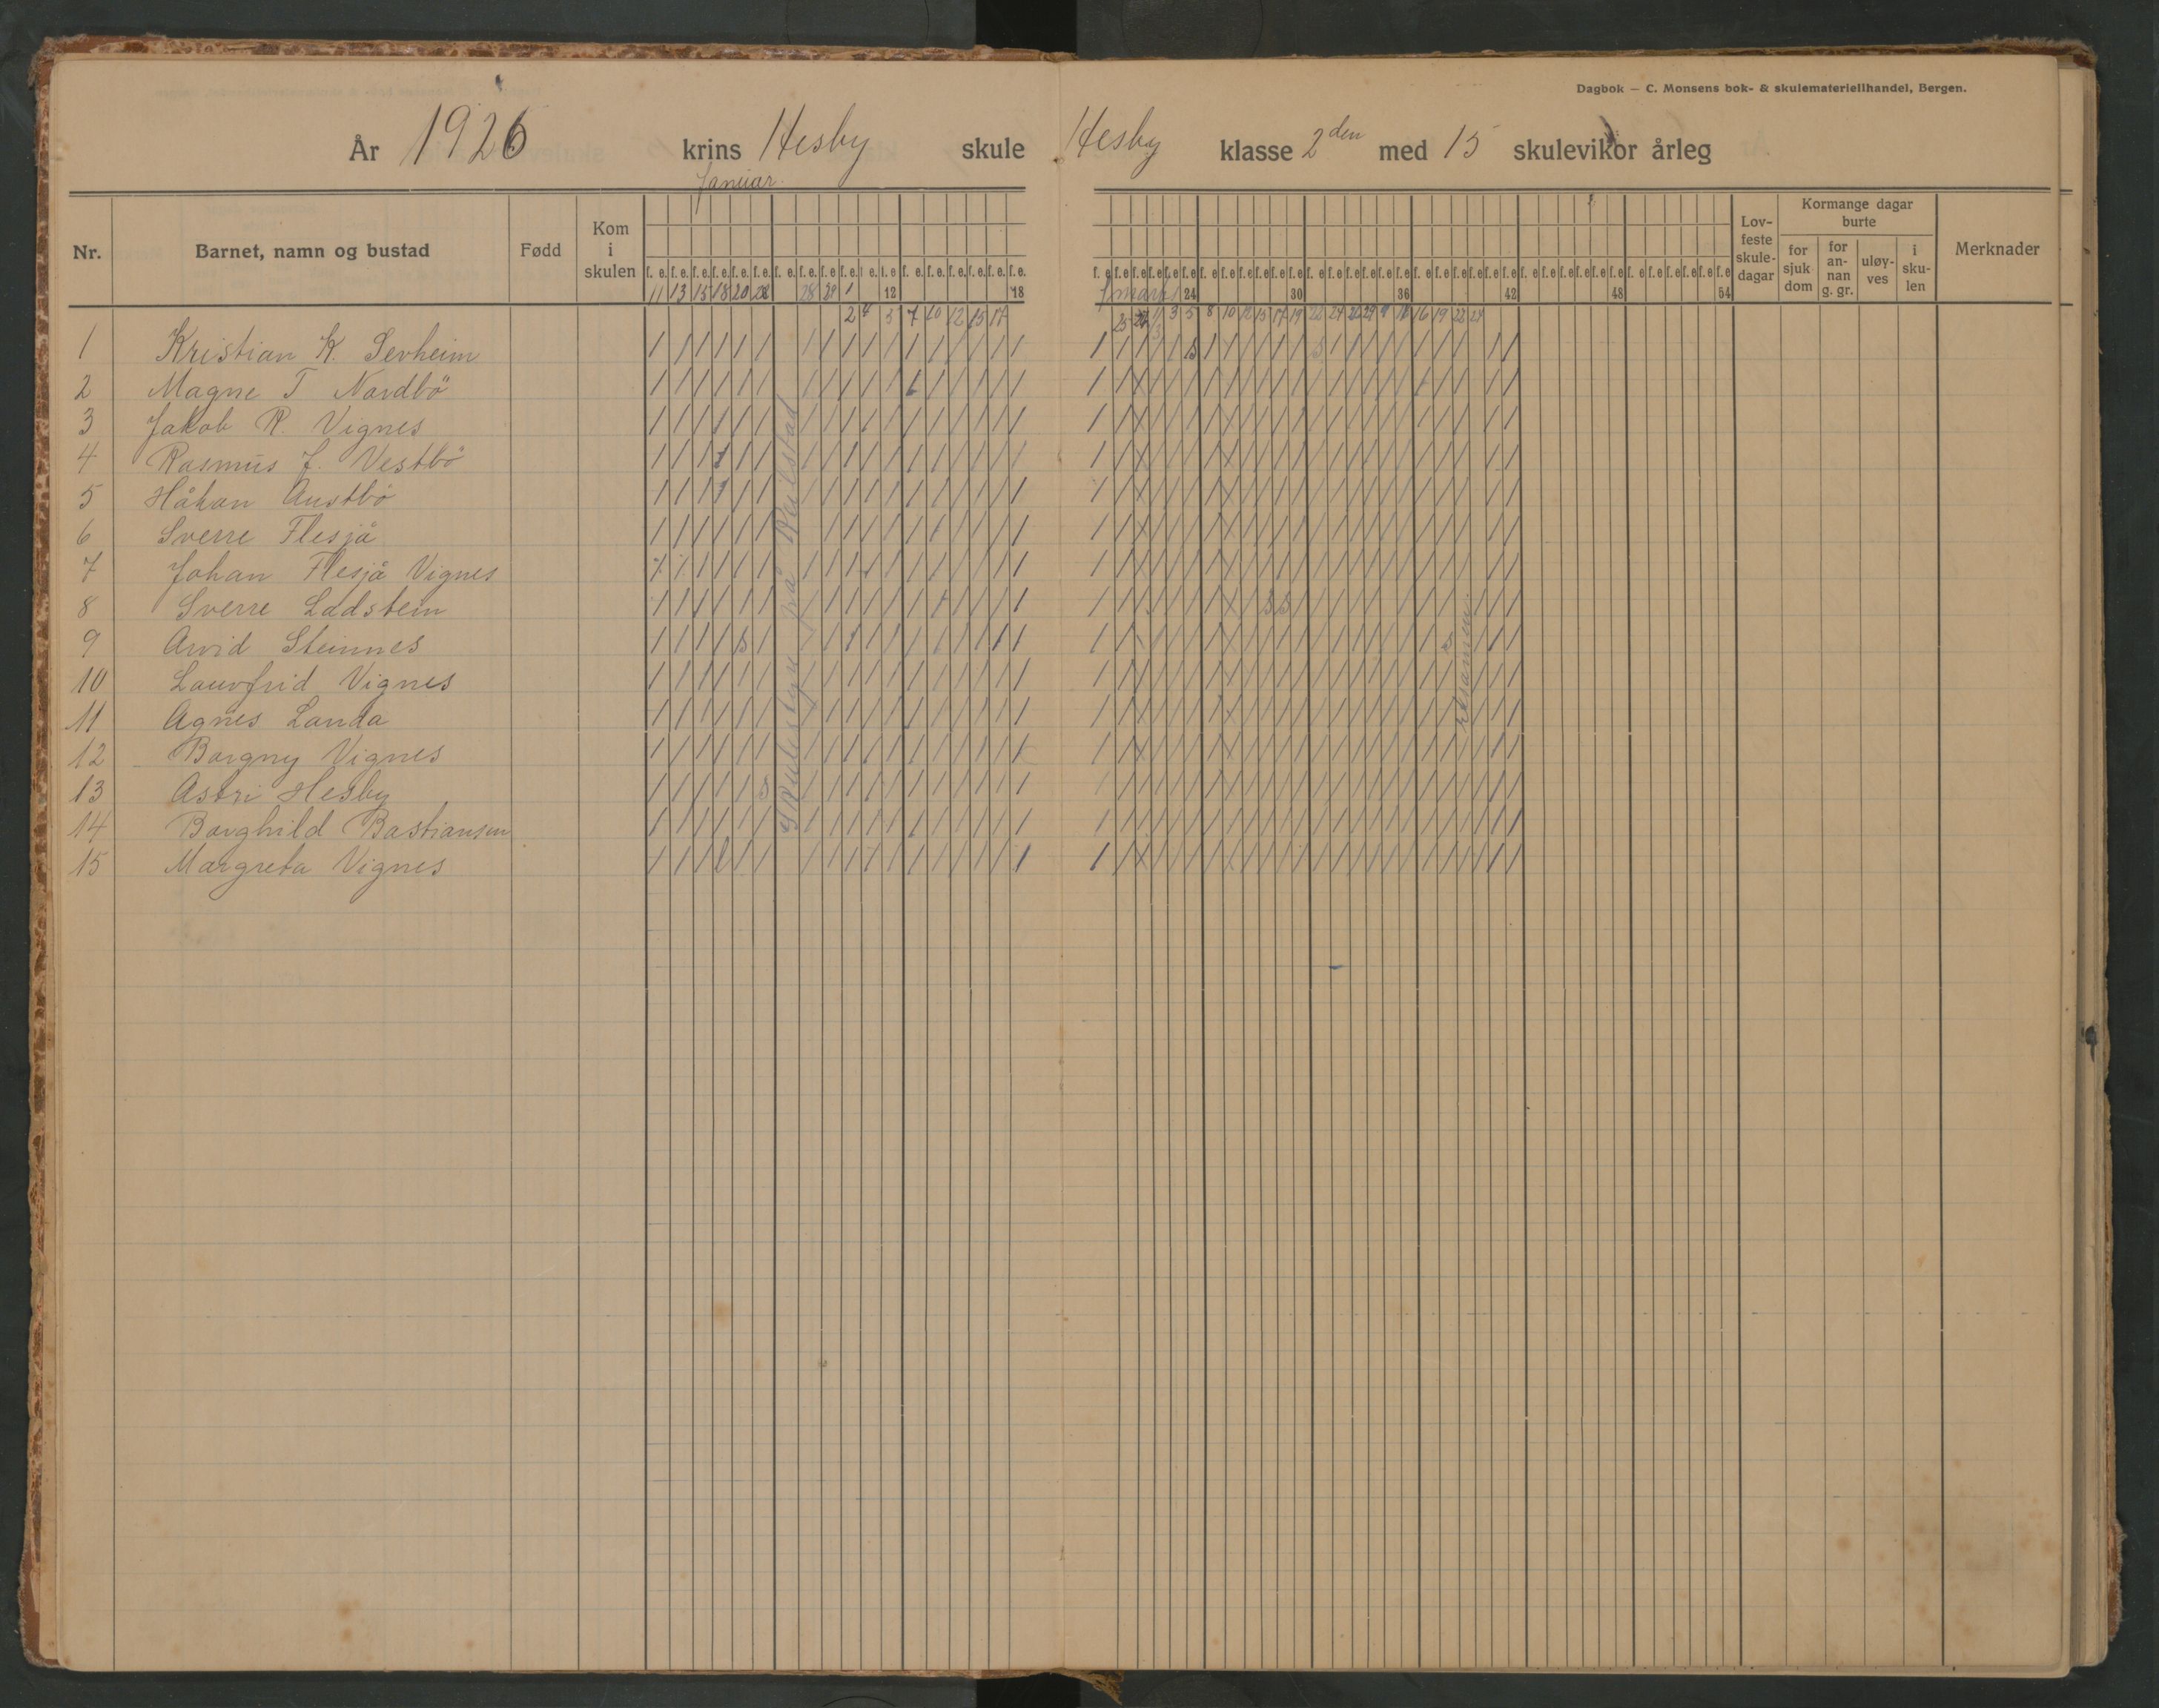 Dagbok — C. Monsens bok- & skulemateriellhandel, Bergen.
År 1926 krins Hesby skule Hesby klasse 2den med 15 skulevikor årleg
Januar
Nr. Barnet, namn og bustad Fødd Kom i skulen Lovfeste skuledagar Kormange dagar burte Merknader
for sjukdom for annan g. gr. uløyves i skulen
f. e. f. e. f. e. f. e. f. e. f. e. f. e. f. e. f. e. f. e. f. e. f. e. f. e. f. e. f. e. f. e. f. e. f. e.
11 13 15 18 20 28 29 1 12 18 24 30 36 42 48 54
2 4 5 7 10 12 15 17 25 1 3 5 8 10 12 15 17 19 22 24 26 29 16 19 22 24
1 Kristian K. Sevheim
2 Magne T Nordbö
3 Jakob R. Vignes
4 Rasmus J. Vestbö
5 Håkon Austbö
6 Sverre Flesjå
7 Johan Flesjå Vignes
8 Sverre Ladstein
9 Arvid Steinnes
10 Lauvfrid Vignes
11 Agnes Landa
12 Borgny Vignes
13 Astri Hesby
14 Borghild Bastiansen
15 Margreta Vignes
eksamen